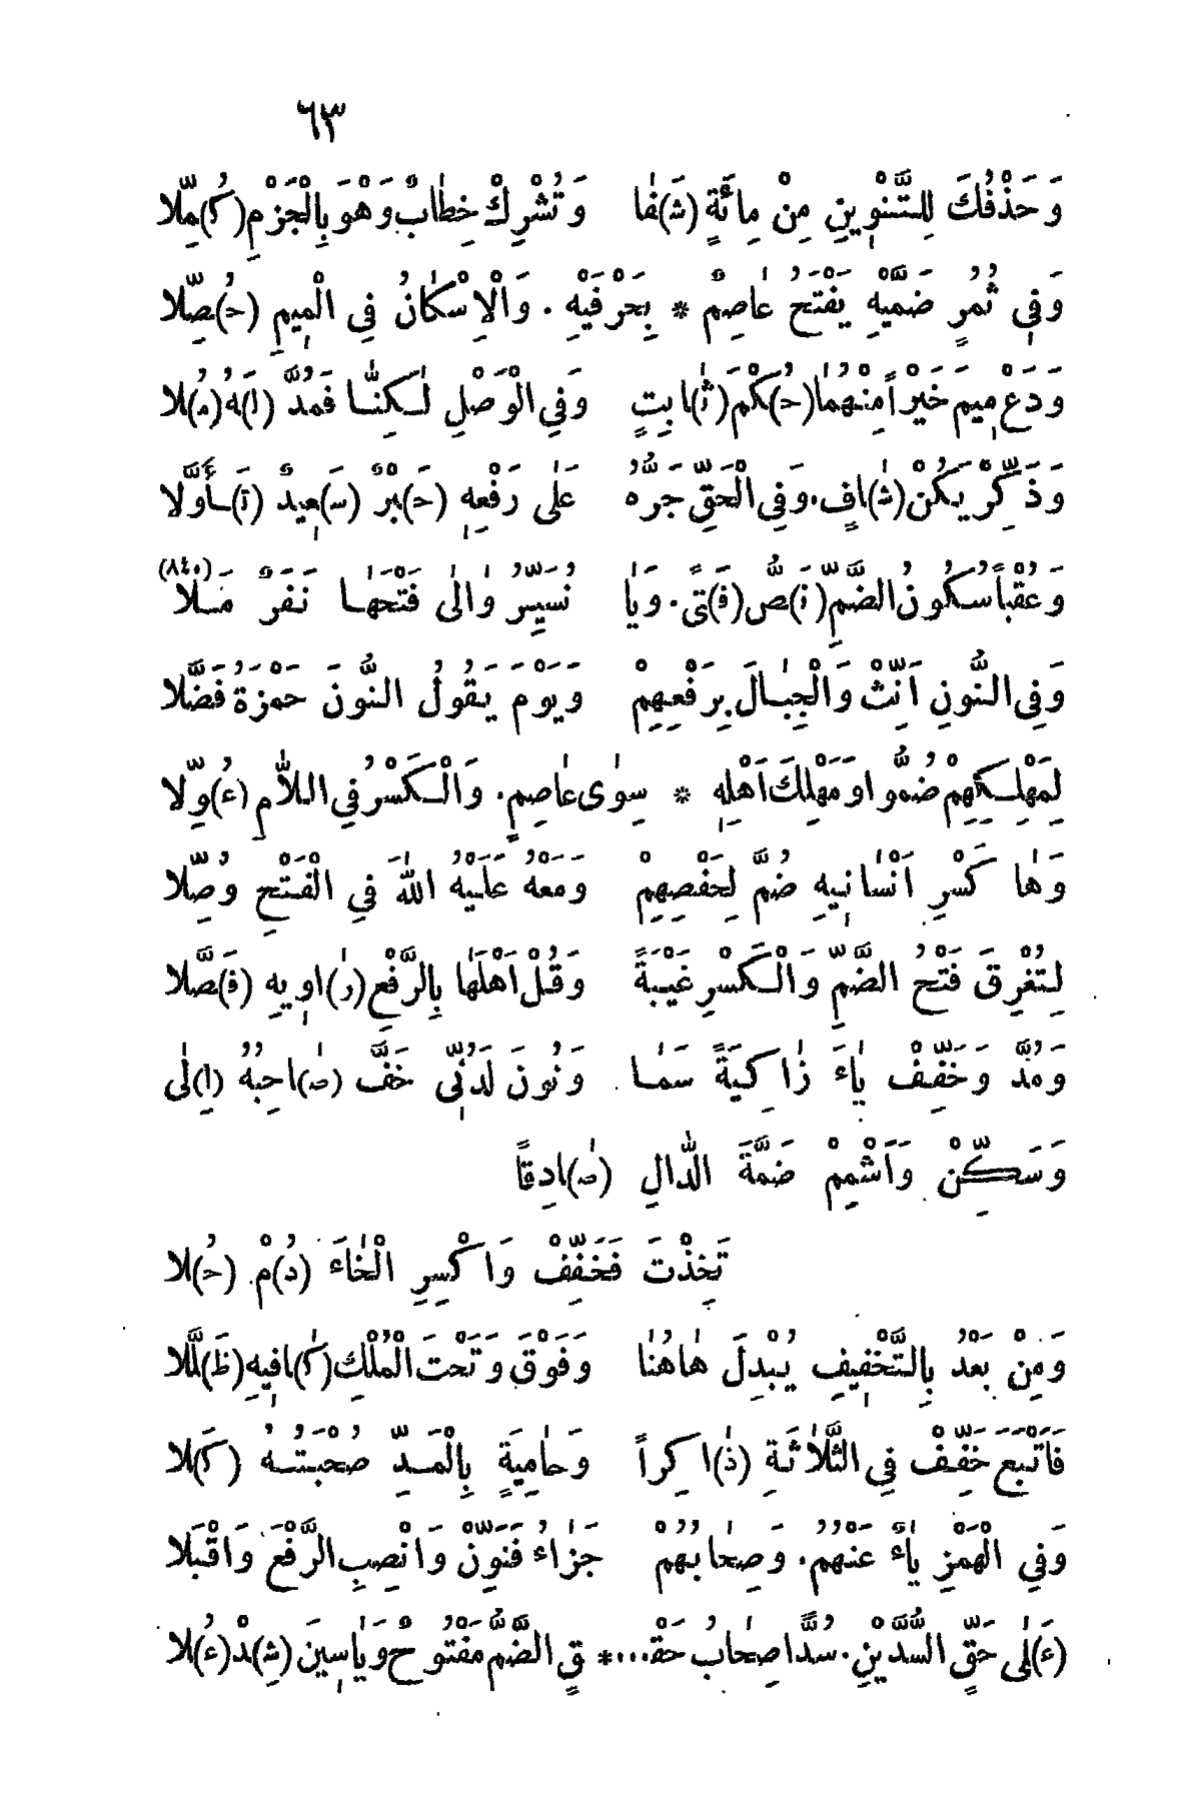 ٦٣
وَحَذْفُكَ لِلتَّنْوِينِ مِنْ مِائَةٍ (شَ)فَا وَتُشْرِكْ خِطَابٌ وَهْوَ بِالْجَزْمِ (كُ)مِّلَا
وَفِي ثُمُرٍ ضَمَّيْهِ يَفْتَحُ عَاصِمٌ * بِحَرْفَيْهِ . وَالْاِسْكَانُ فِي الْمِيمِ (حُ)صِّلَا
وَدَعْ مِيمَ خَيْراً مِنْهُمَا (حُ)كْمَ (ثَ)ابِتٍ وَفِي الْوَصْلِ لٰكِنَّا فَمُدَّ (لَ)هُ (مُ)لَا
وَذَكِّرْ يَكُنْ (شَ)افٍ . وَفِي الْحَقِّ جَرُّهُ عَلَى رَفْعِهِ (حَ)بْرٌ (سَ)عِيدٌ (تَ)أَوَّلَا
وَعُقْباً سُكُونُ الضَّمِّ (نَ)صُّ (فَ)تًى . وَيَا نُسَيِّرُ وَالَى فَتْحَهَا نَفَرٌ مَلَا (٨٤٠)
وَفِي النُّونِ اَنِّثْ وَالْجِبَالَ بِرَفْعِهِمْ وَيَوْمَ يَقُولُ النُّونَ حَمْزَةُ فَضَّلَا
لِمَهْلِكِهِمْ ضُمُّوا وَمَهْلِكَ اَهْلِهِ * سِوَى عَاصِمٍ . وَالْكَسْرُ فِي اللَّامِ (عُ)وِّلَا
وَهَا كَسْرِ اَنْسَانِيهِ ضُمَّ لِحَفْصِهِمْ وَمَعْهُ عَلَيْهُ اللّٰهَ فِي الْفَتْحِ وُصِّلَا
لِتُغْرِقَ فَتْحُ الضَّمِّ وَالْكَسْرِ غَيْبَةً وَقُلْ اَهْلَهَا بِالرَّفْعِ (رَ)اوِيهِ (فَ)صَّلَا
وَمُدَّ وَخَفِّفْ يَاءَ زَاكِيَةً سَمَا . وَنُونَ لَدُنِّي خَفَّ (صَ)احِبُهُ (اِ)لَى
وَسَكِّنْ وَاَشْمِمْ ضَمَّةَ الدَّالِ (صَ)ادِقًا
تَخِذْتَ فَخَفِّفْ وَاكْسِرِ الْخَاءَ (دُ)مْ (حُ)لَا
وَمِنْ بَعْدُ بِالتَّخْفِيفِ يُبْدِلَ هَاهُنَا وَفَوْقَ وَتَحْتَ الْمُلْكِ (كَ)افِيهِ (ظَ)لَّلَا
فَاَتْبَعَ خَفِّفْ فِي الثَّلَاثَةِ (ذَ)اكِراً وَحَامِيَةٍ بِالْمَدِّ صُحْبَتُهُ (كَ)لَا
وَفِي الْهَمْزِ يَاءٌ عَنْهُمُ . وَصِحَابُهُمْ جَزَاءُ فَنَوِّنْ وَانْصِبِ الرَّفْعَ وَاقْبَلَا
(عَ)لَى حَقٍّ السُّدَّيْنِ . سُدًّا صِحَابُ حَقْ...* قٍ الضَّمُّ مَفْتُوحٌ وَيَاسِينَ (شِ)دْ (عُ)لَا